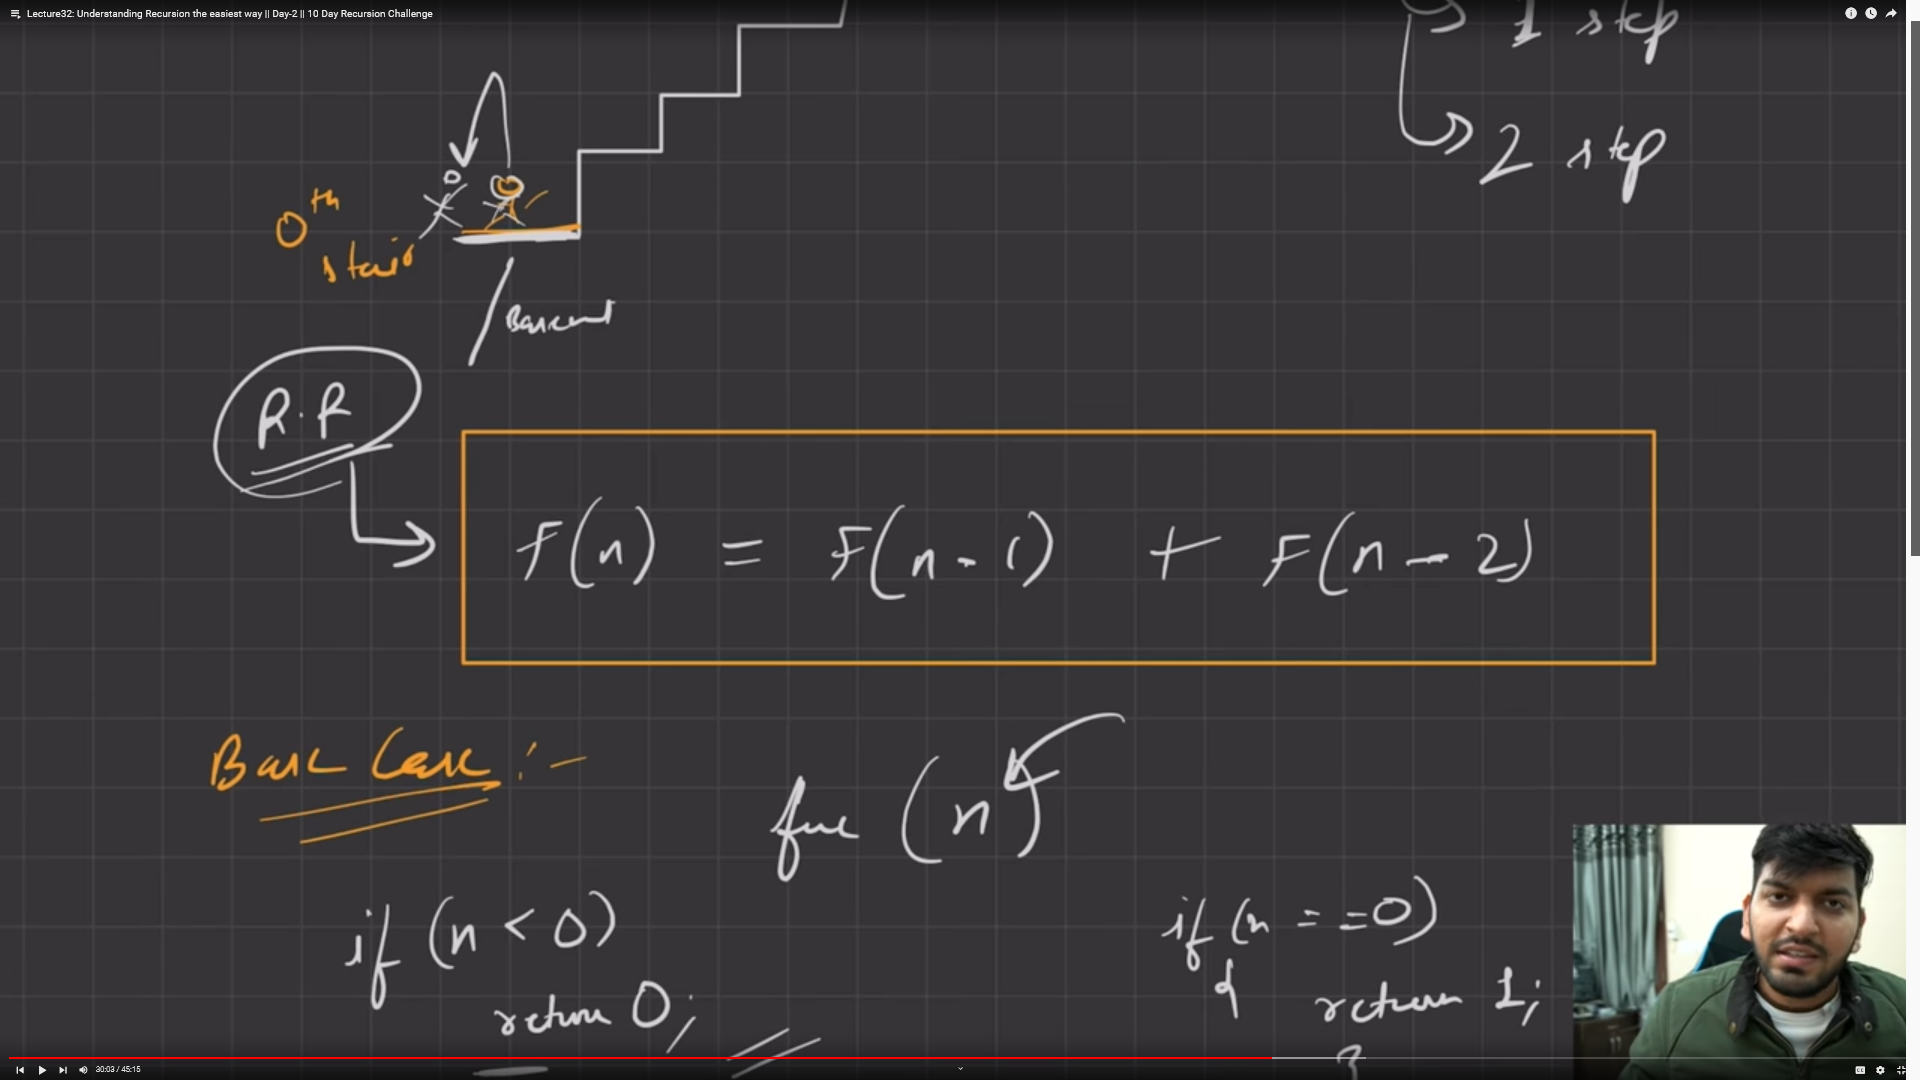 Lecture32: Understanding Recursion the easiest way || Day-2 || 10 Day Recursion Challenge
1 step
2 step
0th stair
R.R
F(n) = F(n-1) + F(n-2)
Base Case :-
func (n)
if (n < 0)
return 0;
if (n == 0)
{
return 1;
}
30:03 / 45:15